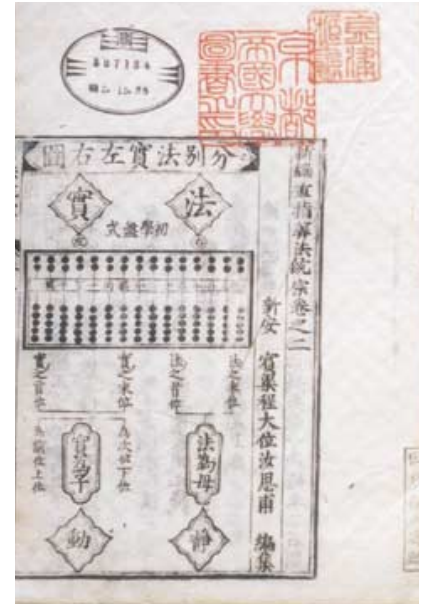 京都
帝國大學
圖書之印
新編直指算法統宗卷之二
新安 賓渠程大位汝思甫 編集
分別法實左右圖
法
實
初學盤式
法之末位
法之首位
實之末位
實之首位
法為母
實為子
靜
動